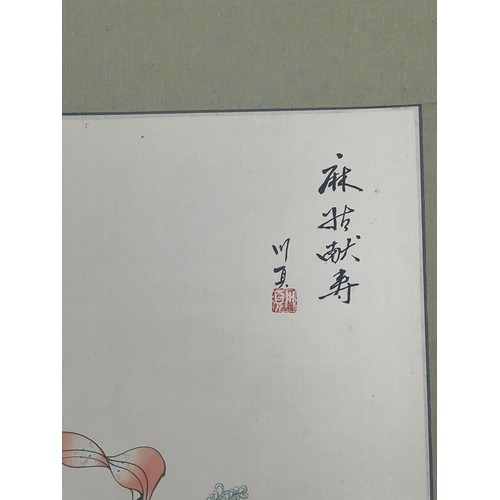 麻姑献寿
川